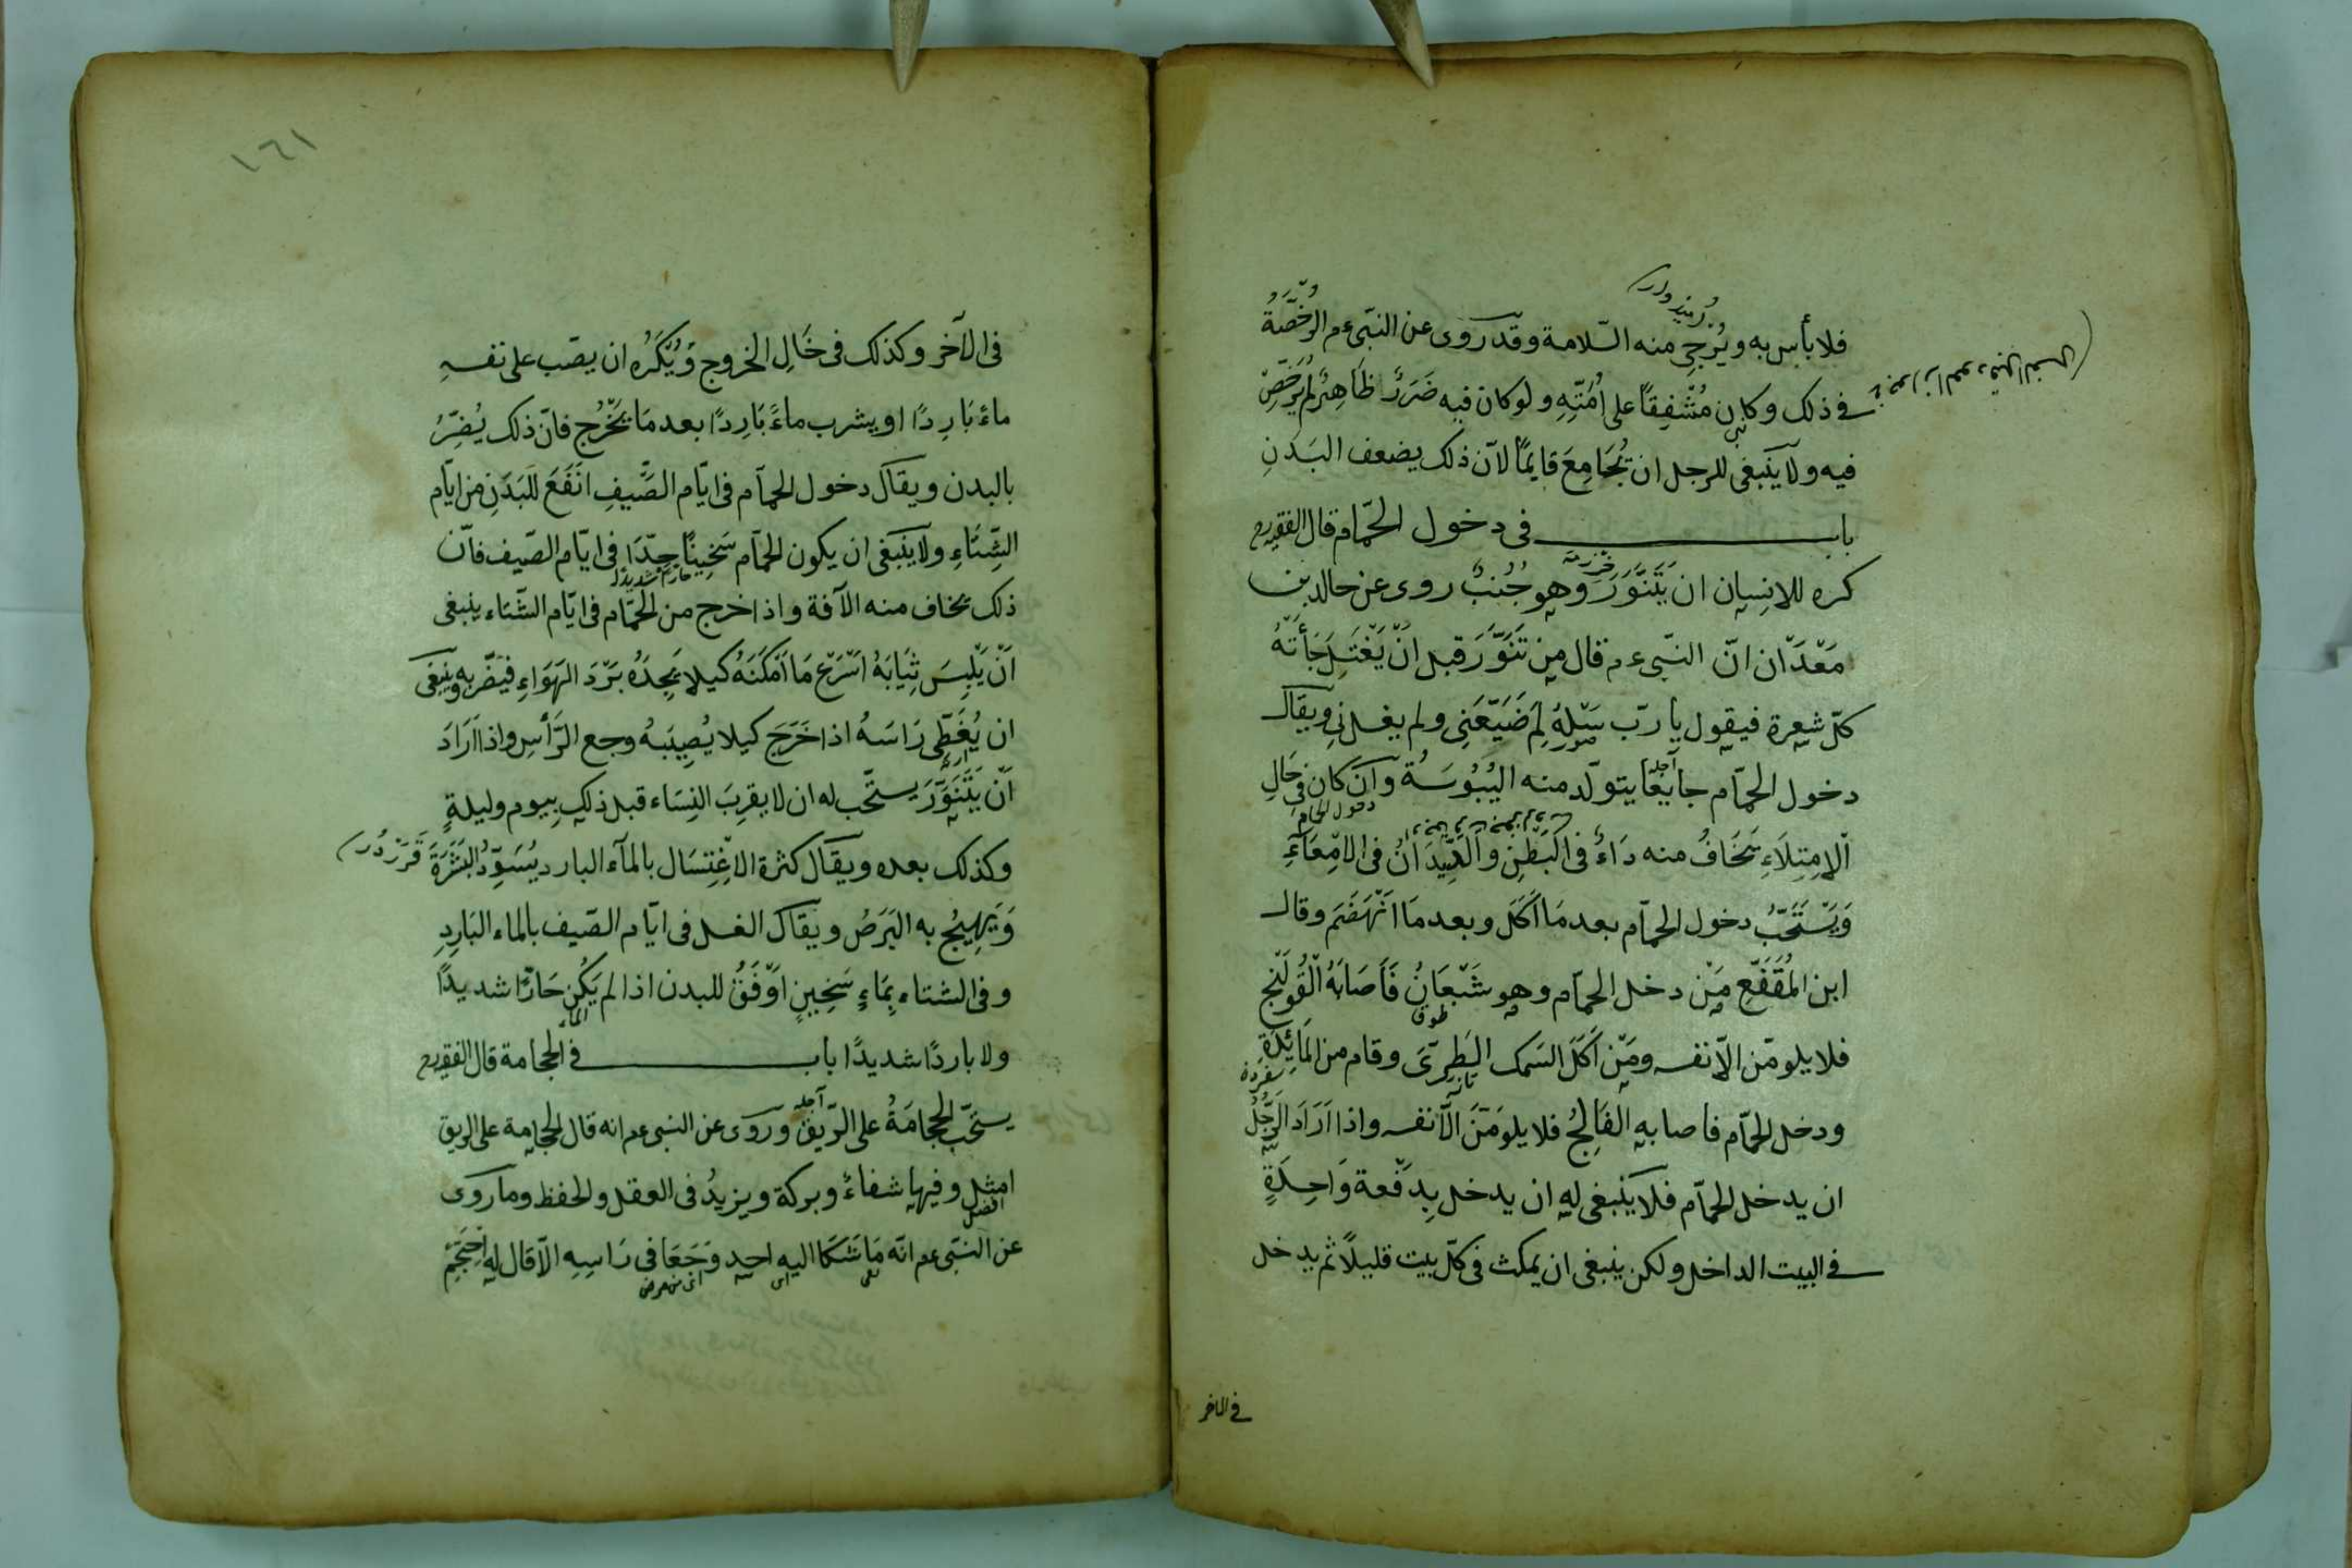 فلا بأس به ويُرْجى منه السّلامة وقد روى عن النبّى عم الرُّخْصَةُ
فى ذلك وكان مُشْفِقًا على اُمَّتِهِ ولو كان فيه ضَرَرٌ ظَاهِرٌ لم يُرَخِّصْ
فيه ولا يَنْبغى للرجل ان يُجَامِعَ قايمًا لانّ ذلك يضعف البَدَنِ
باب فى دخول الحمّام قال الفقيه رح
كره للانسان ان يَتَنَوَّرَ وهو جُنُبٌ روى عن خالد بن
مَعْدَان انّ النبّى عم قال من تَنَوَّرَ قبل انْ يَغْتَسِلَ جَأَتْهُ
كلّ شعرة فيقول يا ربّ سَلْهُ لِمَ ضَيَّعَنِى ولم يغسلنى ويقال
دخول الحمّام جايعًا يتولّد منه اليُبُوسَةُ وانْ كان فى حَالِ
دخول الحمام
الْاِمْتِلَاءِ يَخَافُ منه دَاءٌ فى البَطْنِ والدِّيدَانُ فى الاَمْعَآءِ
وَيَسْتَحَبُّ دخول الحمّام بعد مَا اَكَلَ وبعد مَا انْهَضَمَ وقال
ابن المُقَفَّعِ مَنْ دخل الحمّام وهو شَبْعَانُ فَاَصَابَهُ الْقُولَنْج
فلا يلومّن الّا نفسه ومَنْ اَكَلَ السّمك الطَرِىَّ وقام من المَائِدَةِ
ودخل الحمّام فاصابه الفَالِجُ فلا يلومَنَّ الّا نفسه واذا اَرَادَ الرَّجُلُ
ان يدخل الحمّام فلا يَنْبغى له ان يدخل بِدَفْعة وَاحِدَةٍ
فى البيت الداخل ولكن ينبغى ان يمكث فى كلّ بيت قليلاً ثم يدخل
فى الآخر
١٦١
فى الآخر وكذلك فى حَالِ الخروج وَيُكْرَهُ ان يصّب على نفسه
ماءً بَارِدًا او يشرب ماءً بَارِدًا بعد مَا يَخْرُج فانّ ذلك يُضِرُّ
بالبدن ويقال دخول الحمّام فى ايّام الصَّيفِ اَنْفَعُ للبَدَنِ من ايّام
الشِّتَاءِ ولا ينْبغى ان يكون الحمّام سَخِينًا جِدًّا فى ايّام الصّيف فانّ
ذلك يخاف منه الآفة واذا خرج من الحمّام فى ايّام الشّتاء ينبغى
اَنْ يَلْبِسَ ثِيَابَهُ اَسْرَعَ مَا اَمْكَنَهُ كيلا يَجِدَهُ بَرْدَ الهَوَاءِ فيضّر به وينبغى
ان يُغَطِّى رَاسَهُ اذا خَرَجَ كيلا يُصِيبَهُ وجع الرَّأسِ واذا اَرَادَ
اَنْ يَتَنَوَّرَ يستحّب له ان لا يقرِبَ النِسَاء قبل ذلك بيوم وليلةٍ
وكذلك بعده ويقال كثرة الاِغْتِسَال بالمآء البارد يُسَوِّدُ البَشَرَةَ
وَيَهِيجُ به البَرَصُ ويقال الغسل فى ايّام الصّيف بالماء البَارِدِ
وفى الشتاء بِمَاءٍ سَخِينٍ اَوْفَقُ للبدن اذا لم يَكُنْ حَارًّا شديدًا
الماء
ولا باردًا شديدًا باب فى الحجامة قال الفقيه رح
يستحّب الحجامَةُ على الرّيق ورَوى عن النبى عم انه قال الحجامة على الريق
امثل وفيها شفاءٌ وبركة ويزيدُ فى العقل والحفظ وما روى
افضل
عن النبّى عم انّه مَا شَكَا اليه احد وَجَعَا فى رَاسِهِ الّا قال له اِحْتَجِمْ